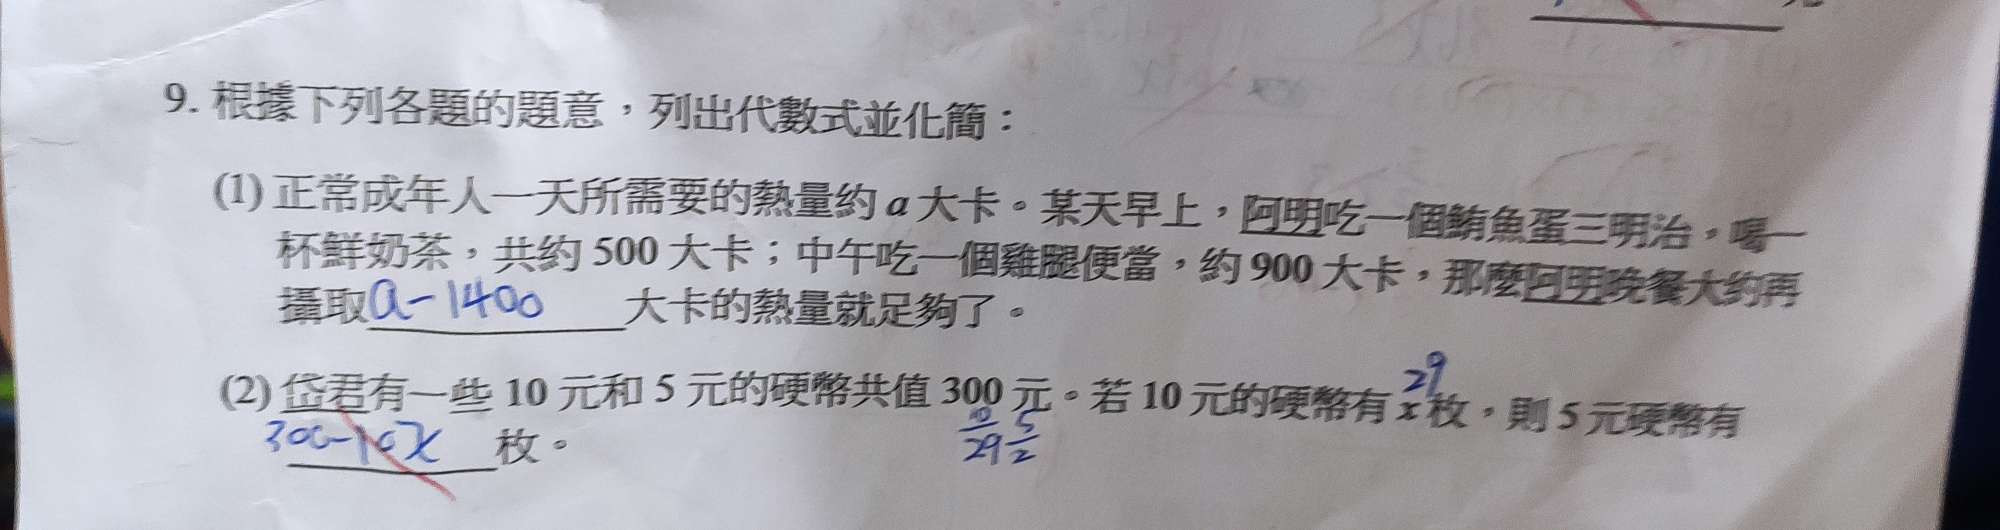 9. 根據下列各題的題意，列出代數式並化簡：
(1) 正常成年人一天所需要的熱量約 a 大卡。某天早上，阿明吃一個鮪魚蛋三明治，喝一
杯鮮奶茶，共約 500 大卡；中午吃一個雞腿便當，約 900 大卡，那麼阿明晚餐大約再
攝取a-1400大卡的熱量就足夠了。
29
(2) 岱君有一些 10 元和 5 元的硬幣共值 300 元。若 10 元的硬幣有 x 枚，則 5 元硬幣有
10 5
300-10x 枚。
29 2